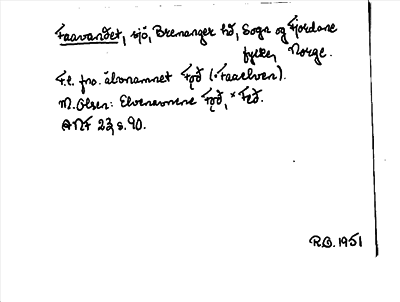 Faavandet, sjö, Bremanger hd, Sogn og Fjordane
fylke, Norge.
F.l. fno. älvnamnet Fǫð (: Faaelven).
M. Olsen: Elvenavnene Fǫð, *Feð.
ANF 23, s. 90.
R.B. 1951